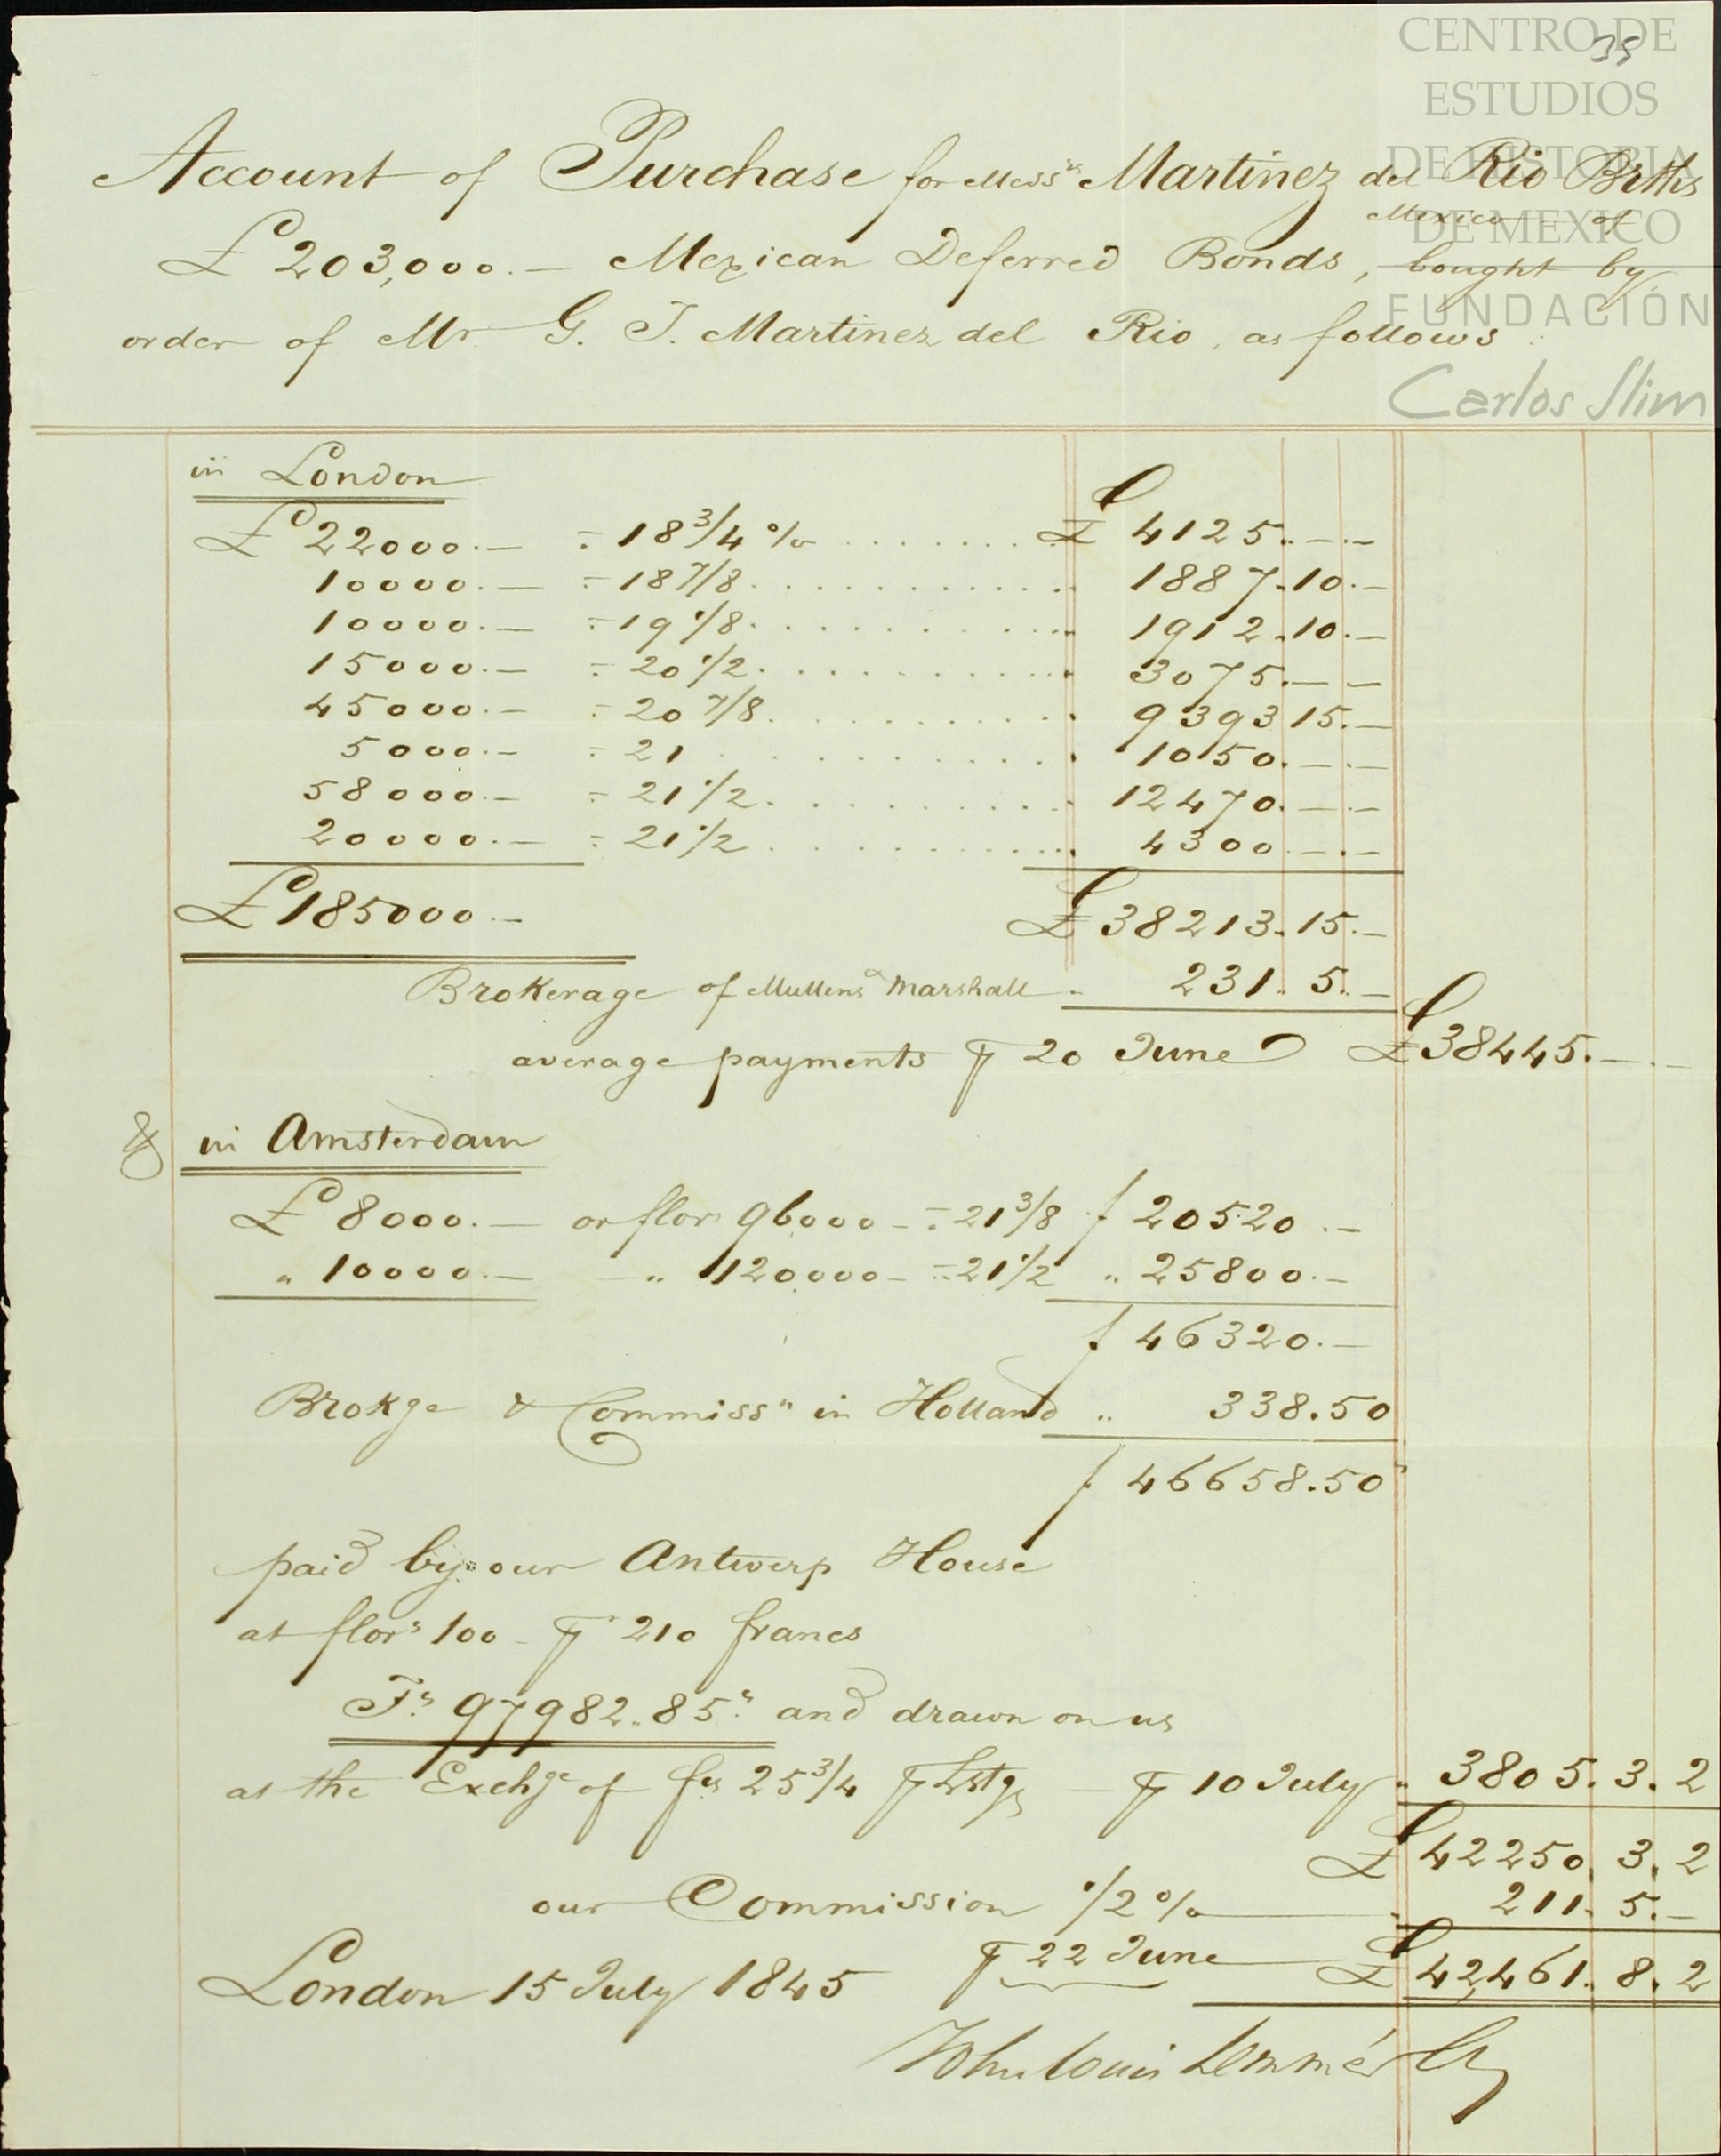 CENTRO DE
ESTUDIOS
DE HISTORIA
DE MEXICO
FUNDACIÓN
Carlos Slim
35
Account of Purchase for Messrs Martinez del Rio Brths
Mexico of
£ 203,000.— Mexican Deferred Bonds, bought by
order of Mr G. J. Martinez del Rio, as follows:
in London
£ 22000.— = 18 3/4 % . . . . . . . £ 4125.—.—
10000.— = 18 7/8 . . . . . . . . . . . 1887.10.—
10000.— = 19 1/8 . . . . . . . . . . . 1912.10.—
15000.— = 20 1/2 . . . . . . . . . . . 3075.—.—
45000.— = 20 7/8 . . . . . . . . . . . 9393.15.—
5000.— = 21 . . . . . . . . . . . 1050.—.—
58000.— = 21 1/2 . . . . . . . . . . . 12470.—.—
20000.— = 21 1/2 . . . . . . . . . . . 4300.—.—
£ 185000.— £ 38213.15.—
Brokerage of Mullens & Marshall . 231. 5.—
average payments ⅌ 20 June £ 38445.—.—
& in Amsterdam
£ 8000.— or flors 96000 — = 21 3/8 f 20520.—
" 10000.— — " 120000 — = 21 1/2 " 25800.—
f 46320.—
Brokge & Commissn in Holland " 338.50
f 46658.50
paid by our Antwerp House
at flors 100 — ⅌ 210 francs
Fs 97982.85 and drawn on us
at the Exchge of fs 25 3/4 ⅌ Lstg — ⅌ 10 July " 3805. 3. 2
£ 42250. 3. 2
our Commission 1/2 % — 211. 5.—
⅌ 22 June £ 42,461. 8. 2
London 15 July 1845
John Louis Lemmé &Co